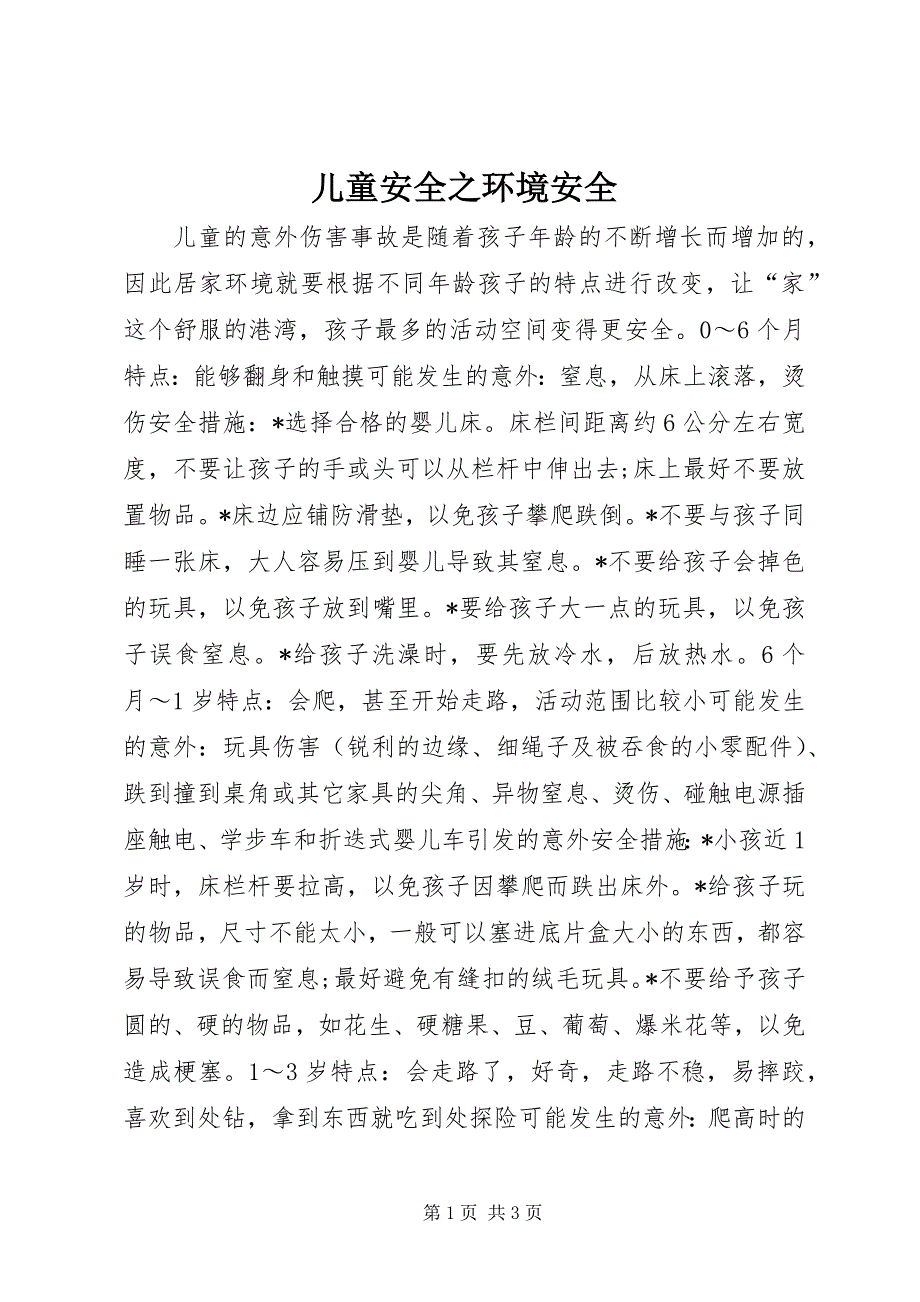 儿童安全之环境安全
儿童的意外伤害事故是随着孩子年龄的不断增长而增加的，
因此居家环境就要根据不同年龄孩子的特点进行改变，让“家”
这个舒服的港湾，孩子最多的活动空间变得更安全。0～6 个月
特点：能够翻身和触摸可能发生的意外：窒息，从床上滚落，烫
伤安全措施：*选择合格的婴儿床。床栏间距离约 6 公分左右宽
度，不要让孩子的手或头可以从栏杆中伸出去;床上最好不要放
置物品。*床边应铺防滑垫，以免孩子攀爬跌倒。*不要与孩子同
睡一张床，大人容易压到婴儿导致其窒息。*不要给孩子会掉色
的玩具，以免孩子放到嘴里。*要给孩子大一点的玩具，以免孩
子误食窒息。*给孩子洗澡时，要先放冷水，后放热水。6 个
月～1 岁特点：会爬，甚至开始走路，活动范围比较小可能发生
的意外：玩具伤害（锐利的边缘、细绳子及被吞食的小零配件）、
跌到撞到桌角或其它家具的尖角、异物窒息、烫伤、碰触电源插
座触电、学步车和折迭式婴儿车引发的意外安全措施：*小孩近 1
岁时，床栏杆要拉高，以免孩子因攀爬而跌出床外。*给孩子玩
的物品，尺寸不能太小，一般可以塞进底片盒大小的东西，都容
易导致误食而窒息;最好避免有缝扣的绒毛玩具。*不要给予孩子
圆的、硬的物品，如花生、硬糖果、豆、葡萄、爆米花等，以免
造成梗塞。1～3 岁特点：会走路了，好奇，走路不稳，易摔跤，
喜欢到处钻，拿到东西就吃到处探险可能发生的意外：爬高时的
第 1 页 共 3 页